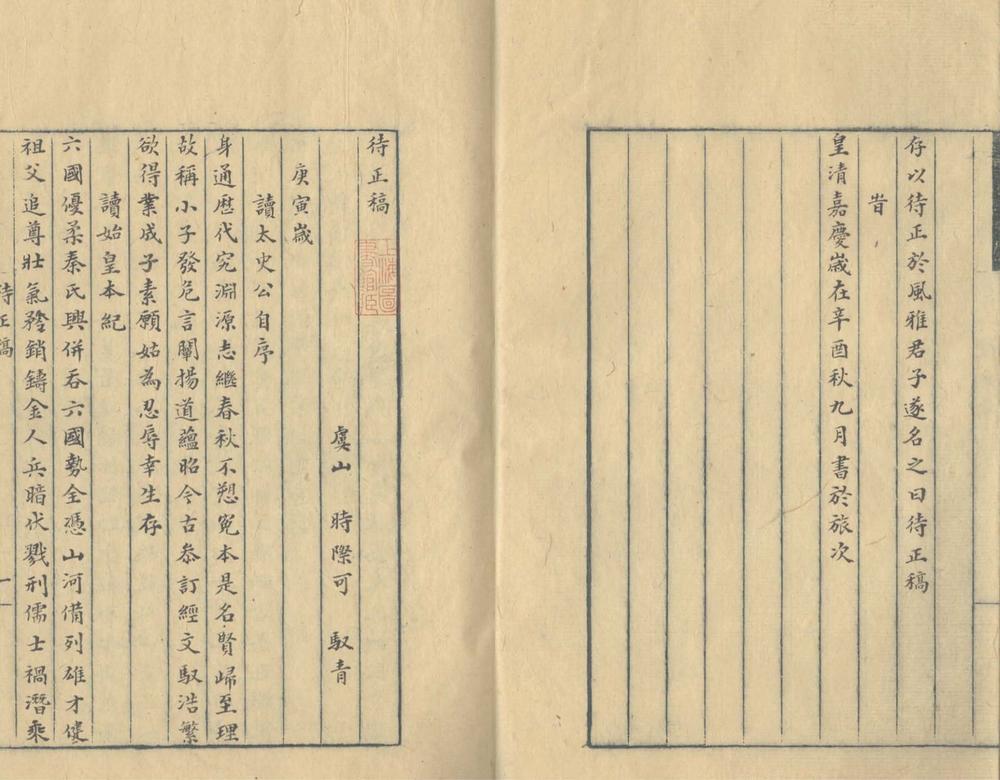 存以待正於風雅君子遂名之曰待正稿
旹
皇清嘉慶歲在辛酉秋九月書於旅次
待正稿
虞山 時際可 馭青
庚寅歲
讀太史公自序
身通歷代究淵源志繼春秋不愬冤本是名賢歸至理
故稱小子發危言闡揚道蘊昭今古叅訂經文馭浩繁
欲得業成子素願姑為忍辱幸生存
讀始皇本紀
六國優柔秦氏興併吞六國勢全憑山河備列雄才健
祖父追尊壯氣矜銷鑄金人兵暗伏戮刑儒士禍潛乘
待正稿
一